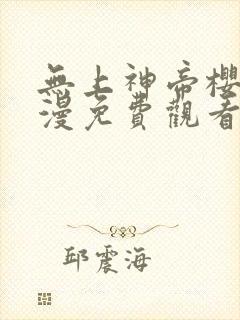 無上神帝櫻
漫免費觀看
邱震海